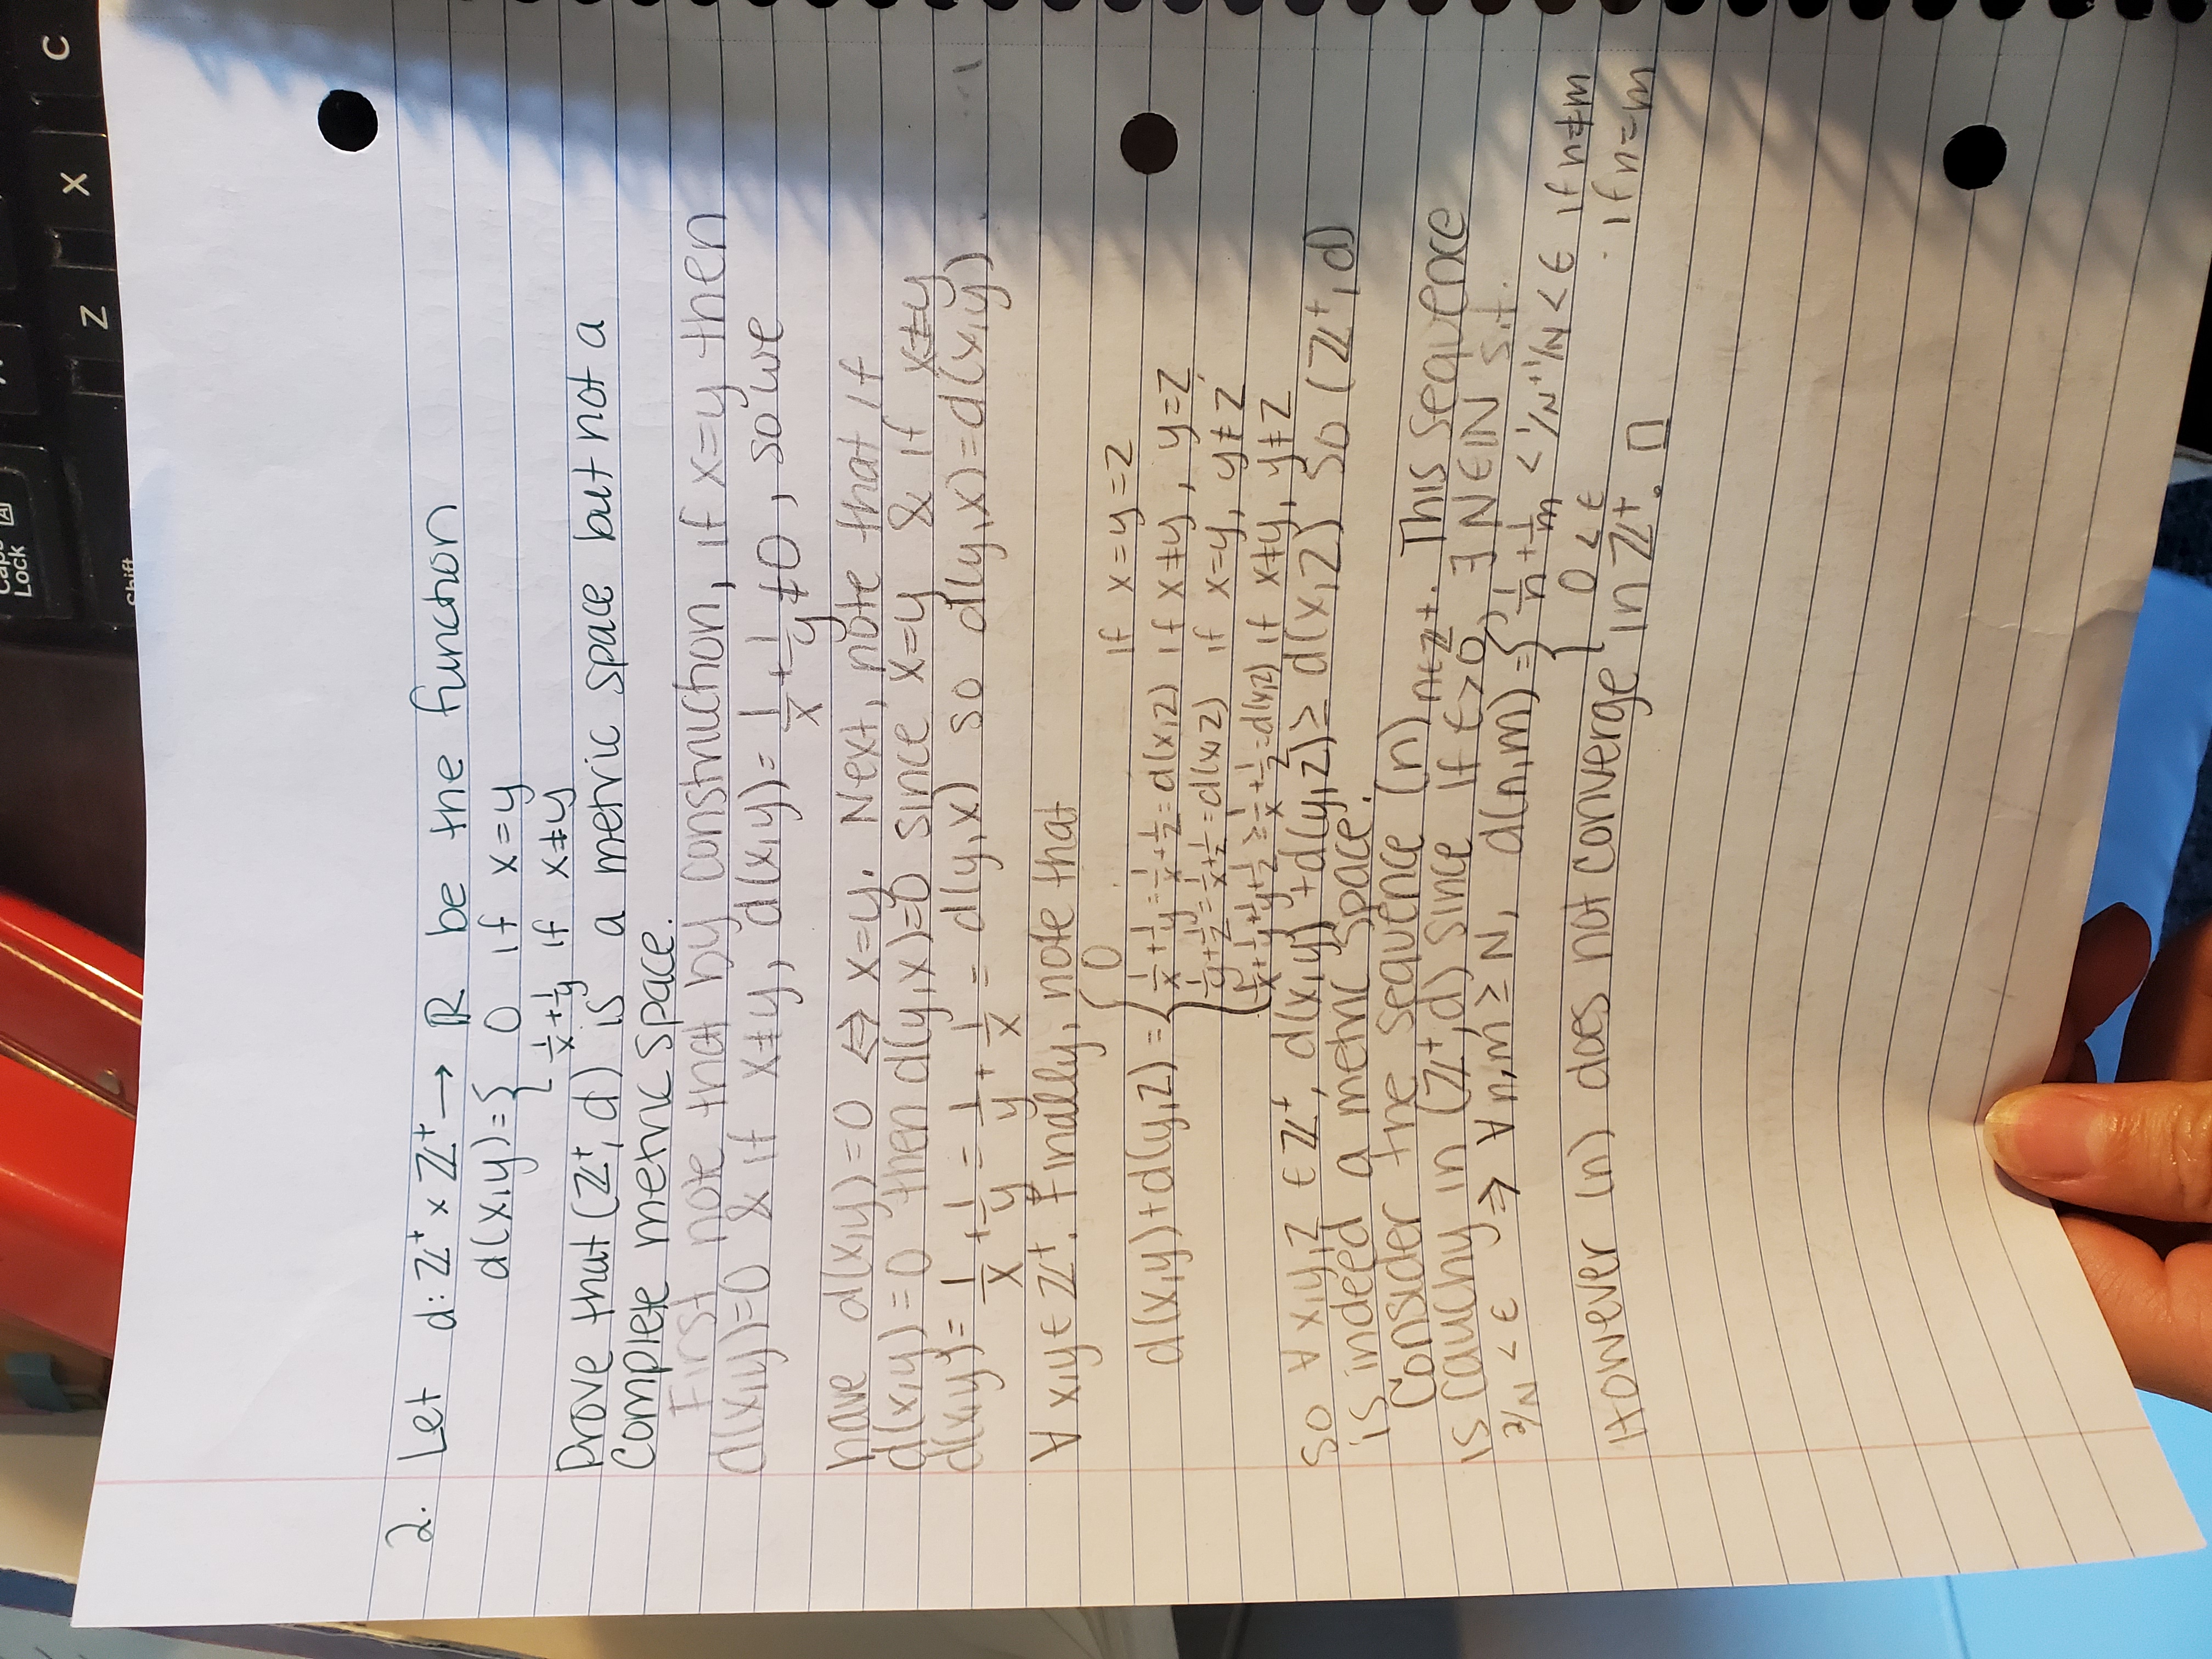 Caps
Lock A
Shift Z X C
2. Let d: ℤ⁺ × ℤ⁺ → ℝ be the function
d(x,y) = { 0 if x=y
1/x + 1/y if x≠y
Prove that (ℤ⁺, d) is a metric space but not a
complete metric space.
First note that by construction, if x=y then
d(x,y)=0 & if x≠y, d(x,y) = 1/x + 1/y ≠ 0, so we
have d(x,y)=0 ⇔ x=y. Next, note that if
d(x,y)=0 then d(y,x)=0 since x=y & if x≠y
d(x,y) = 1/x + 1/y = 1/y + 1/x = d(y,x) so d(y,x)=d(x,y)
∀ x,y ∈ ℤ⁺. Finally, note that
d(x,y)+d(y,z) = { 0 if x=y=z
1/x + 1/y = 1/x + 1/z = d(x,z) if x≠y, y=z
1/y + 1/z = 1/x + 1/z = d(x,z) if x=y, y≠z
1/x + 1/y + 1/y + 1/z ≥ 1/x + 1/z = d(x,z) if x≠y, y≠z
so ∀ x,y,z ∈ ℤ⁺, d(x,y)+d(y,z) ≥ d(x,z) so (ℤ⁺, d)
is indeed a metric space.
Consider the sequence (n)n∈ℤ⁺. This sequence
is cauchy in (ℤ⁺,d) since if ϵ>0, ∃ N∈ℕ s.t.
2/N < ϵ ⇒ ∀ n,m ≥ N, d(n,m) = { 1/n + 1/m < 1/N + 1/N < ϵ if n≠m
0 < ϵ if n=m
However (n) does not converge in ℤ⁺. □